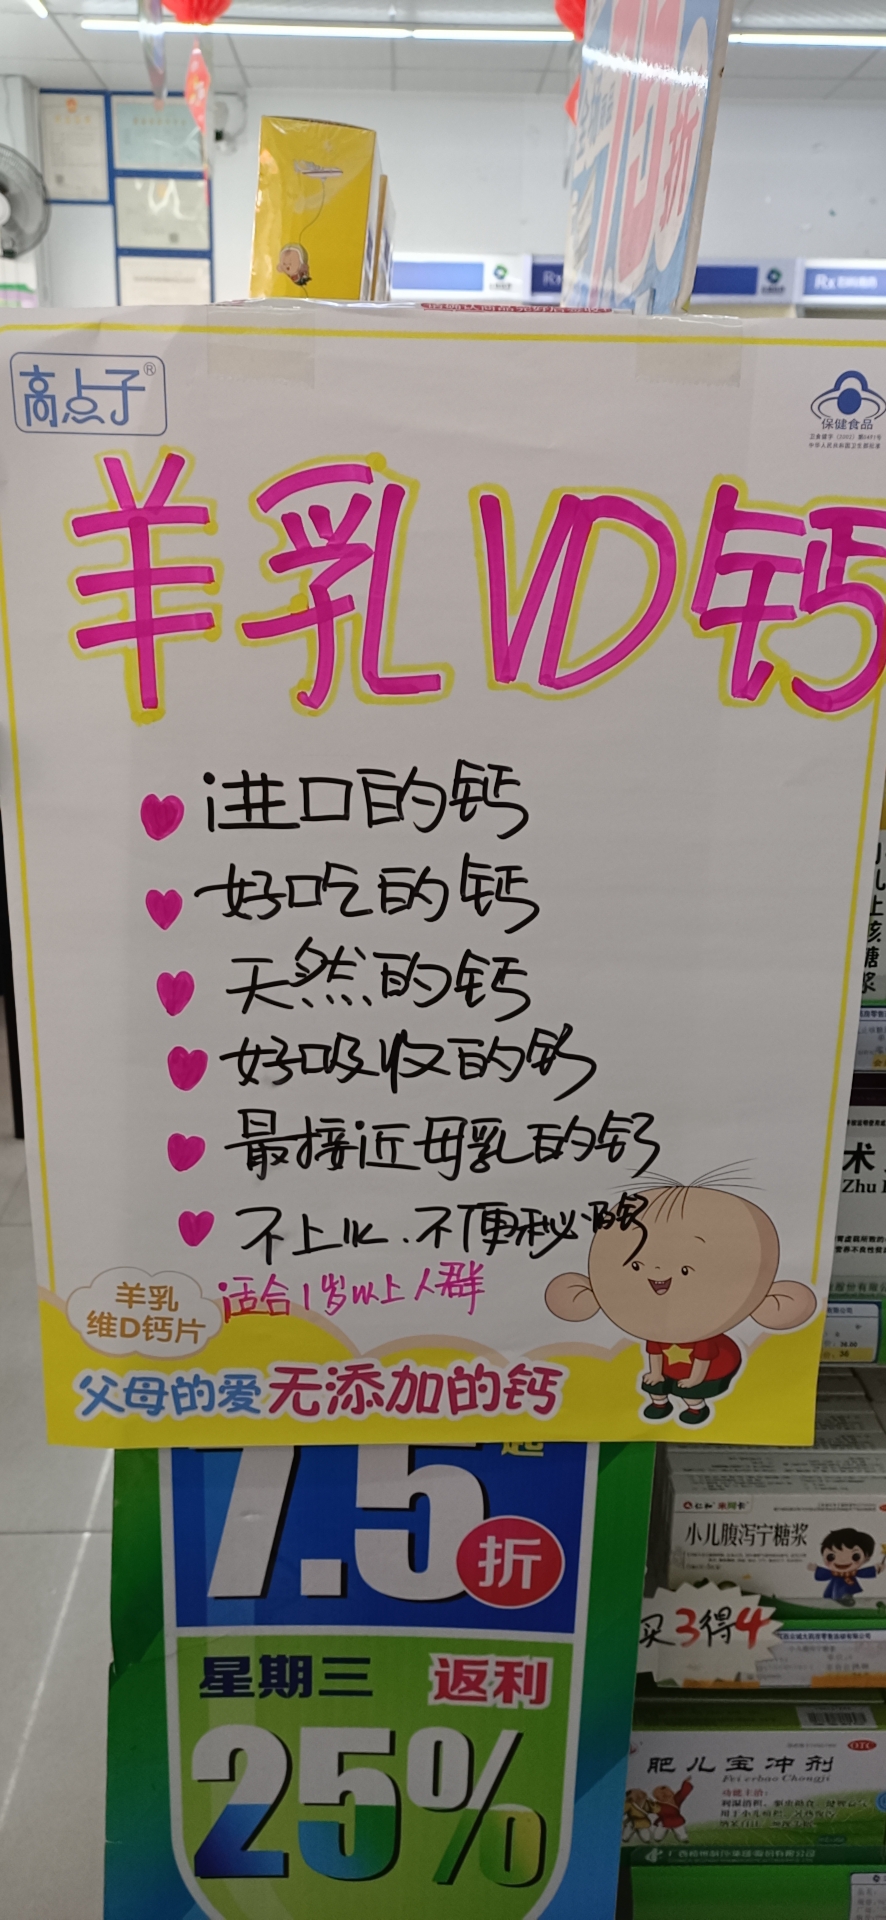 75折
Rx
高点子®
保健食品
羊乳VD钙
进口的钙
好吃的钙
天然的钙
好吸收的钙
最接近母乳的钙
不上火.不便秘的钙
适合1岁以上人群
羊乳
维D钙片
父母的爱无添加的钙
7.5折
起
星期三 返利
25%
术
Zhu
仁和
小儿腹泻宁糖浆
买3得4
OTC
肥儿宝冲剂
Fei erbao Chongji
功能主治: